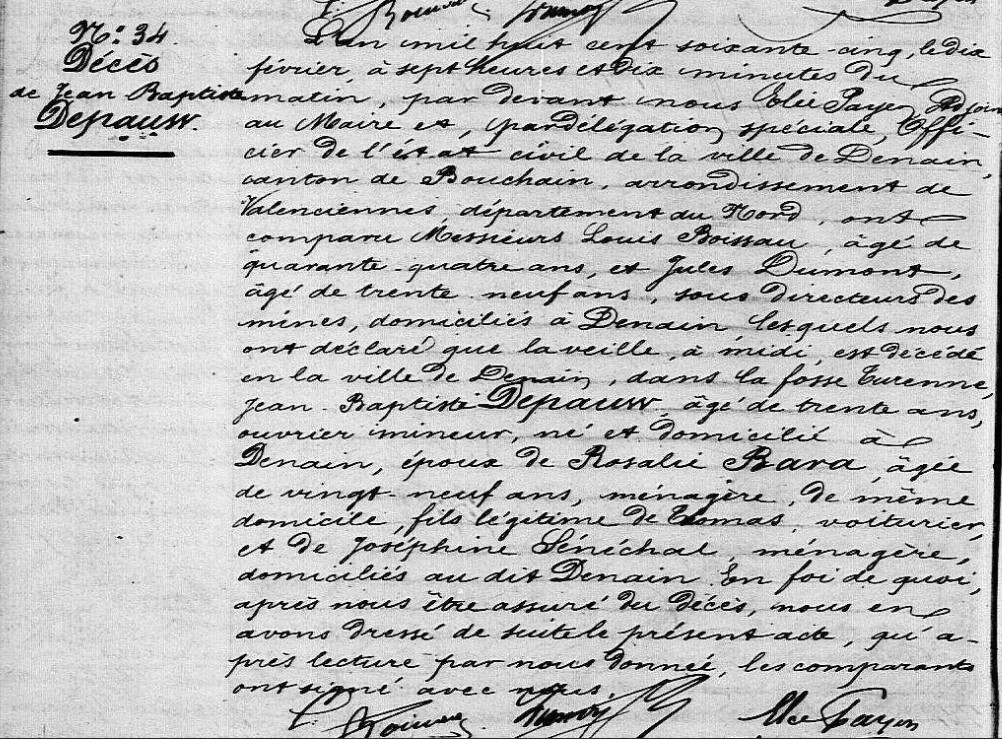 N.º 34.
Décès
de Jean Baptiste
Depauw.
L'an mil huit cent soixante-cinq, le dix
février, à sept heures et dix minutes du
matin, par devant nous Elie Payen, Adjoint
au Maire et, par délégation spéciale, Offi-
cier de l'état civil de la ville de Denain,
canton de Bouchain, arrondissement de
Valenciennes, département du Nord, ont
comparu Messieurs Louis Boissau, âgé de
quarante-quatre ans, et Jules Dumont,
âgé de trente neuf ans, sous directeurs des
mines, domiciliés à Denain lesquels nous
ont déclaré que la veille, à midi, est décédé
en la ville de Denain, dans la fosse Turenne,
Jean-Baptiste Depauw, âgé de trente ans,
ouvrier mineur, né et domicilié à
Denain, époux de Rosalie Bara, âgée
de vingt-neuf ans, ménagère, de même
domicile, fils légitime de Thomas, voiturier,
et de Joséphine Sénéchal, ménagère,
domiciliés au dit Denain. En foi de quoi,
après nous être assuré du décès, nous en
avons dressé de suite le présent acte, qu'a-
près lecture par nous donnée, les comparants
ont signé avec nous.
Elie Payen